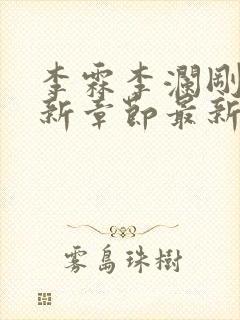 李霖李瀾剛
新章節最新
雾島珠樹